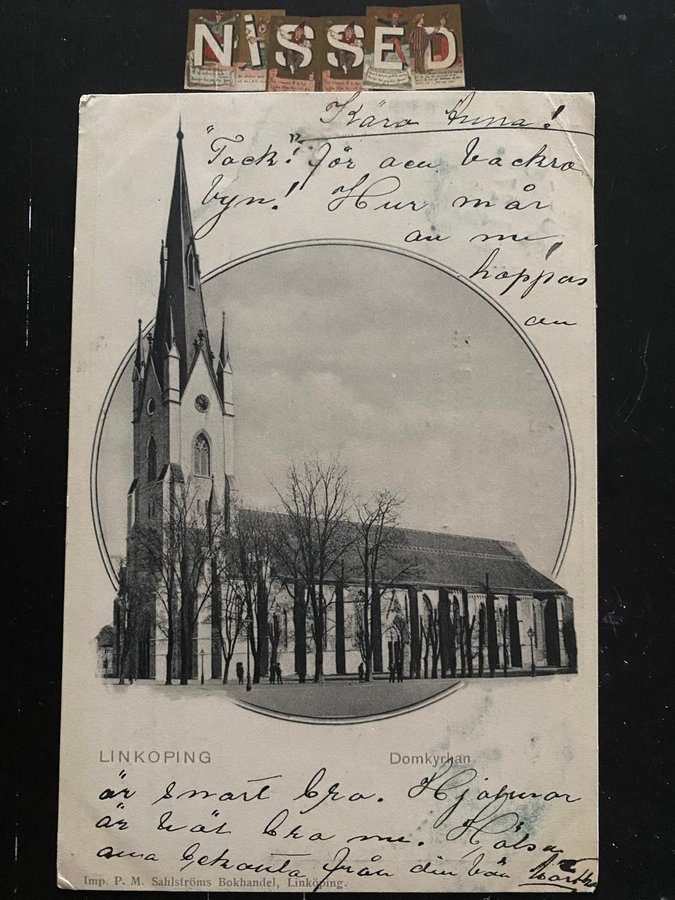 NiSSED
Kära Anna!
"Tack!" för den vackra
vyn! Hur mår
du nu,
hoppas
du
LINKÖPING
Domkyrkan.
är snart bra. Hjalmar
är rätt bra nu. Hälsa
alla bekanta från din vän
Imp. P. M. Sahlströms Bokhandel, Linköping.